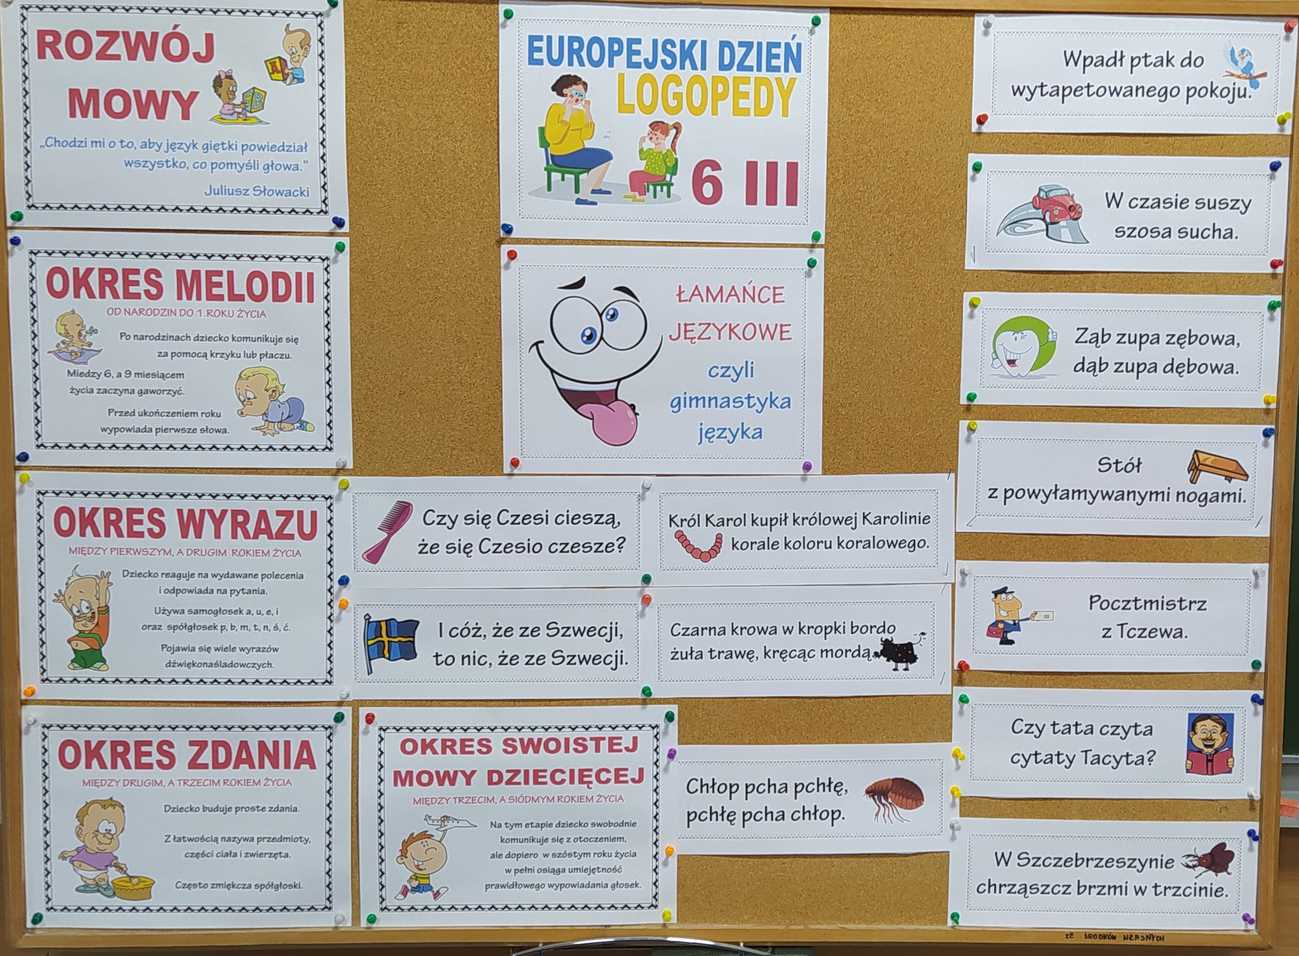 ROZWÓJ
MOWY
„Chodzi mi o to, aby język giętki powiedział
wszystko, co pomyśli głowa."
Juliusz Słowacki
OKRES MELODII
OD NARODZIN DO 1 ROKU ŻYCIA
Po narodzinach dziecko komunikuje się
za pomocą krzyku lub płaczu.
Miedzy 6, a 9 miesiącem
życia zaczyna gaworzyć.
Przed ukończeniem roku
wypowiada pierwsze słowa.
OKRES WYRAZU
MIĘDZY PIERWSZYM, A DRUGIM ROKIEM ŻYCIA
Dziecko reaguje na wydawane polecenia
i odpowiada na pytania.
Używa samogłosek a, u, e, i
oraz spółgłosek p, b, m, t, n, ś, ć.
Pojawia się wiele wyrazów
dźwiękonaśladowczych.
OKRES ZDANIA
MIĘDZY DRUGIM, A TRZECIM ROKIEM ŻYCIA
Dziecko buduje proste zdania.
Z łatwością nazywa przedmioty,
części ciała i zwierzęta.
Często zmiękcza spółgłoski.
OKRES SWOISTEJ
MOWY DZIECIĘCEJ
MIĘDZY TRZECIM, A SIÓDMYM ROKIEM ŻYCIA
Na tym etapie dziecko swobodnie
komunikuje się z otoczeniem,
ale dopiero w szóstym roku życia
w pełni osiąga umiejętność
prawidłowego wypowiadania głosek.
EUROPEJSKI DZIEŃ
LOGOPEDY
6 III
ŁAMAŃCE
JĘZYKOWE
czyli
gimnastyka
języka
Czy się Czesi cieszą,
że się Czesio czesze?
Król Karol kupił królowej Karolinie
korale koloru koralowego.
I cóż, że ze Szwecji,
to nic, że ze Szwecji.
Czarna krowa w kropki bordo
żuła trawę, kręcąc mordą.
Chłop pcha pchłę,
pchłę pcha chłop.
Wpadł ptak do
wytapetowanego pokoju.
W czasie suszy
szosa sucha.
Ząb zupa zębowa,
dąb zupa dębowa.
Stół
z powyłamywanymi nogami.
Pocztmistrz
z Tczewa.
Czy tata czyta
cytaty Tacyta?
W Szczebrzeszynie
chrząszcz brzmi w trzcinie.